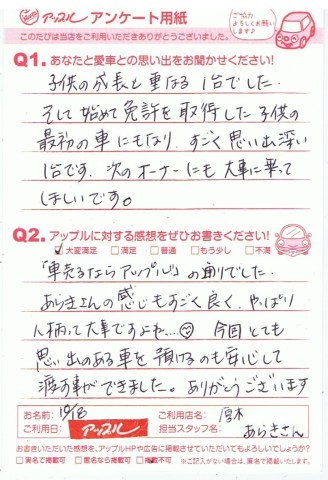 アップル アンケート用紙
ご協力よろしくお願いします♪
このたびは当店をご利用いただきありがとうございました。
Q1. あなたと愛車との思い出をお聞かせください!
子供の成長と重なる1台でした。
そして始めて免許を取得した子供の
最初の車にもなり、すごく思い出深い
1台です。次のオーナーにも大事に乗って
ほしいです。
Q2. アップルに対する感想をぜひお書きください!
☑大変満足 □満足 □普通 □もう少し □不満
「車売るならアップル」の通りでした。
あらきさんの感じもすごく良く、やっぱり
人柄って大事ですよね....
今回とても
思い出のある車を預けるのも安心して
渡す事ができました。ありがとうございます
お名前: ご利用店名: 厚木
ご利用日: 10/8 アップル 担当スタッフ名: あらきさん
お書きいただいた感想を、アップルHPや広告に掲載させていただいてもよろしいでしょうか?
□実名で掲載可 □匿名なら掲載可 □掲載不可 ※ご記入がない場合は、匿名で掲載いたします。